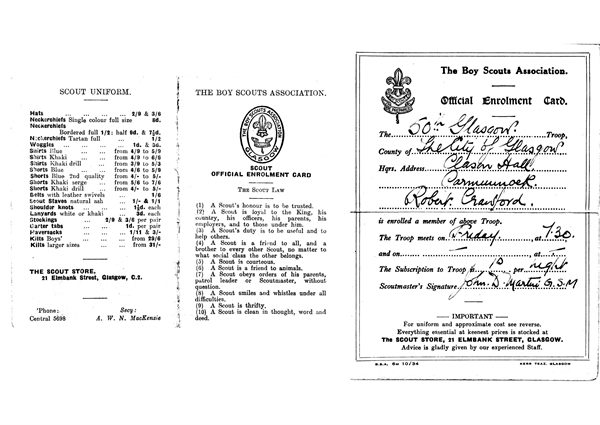 SCOUT UNIFORM.
Hats ... ... ... ... 2/9 & 3/6
Neckerchiefs Single colour full size 8d.
Neckerchiefs
Bordered full 1/2; half 9d. & 7½d.
Neckerchiefs Tartan full ... 1/2
Woggles ... ... ... 1d. & 3d.
Shirts Blue ... ... from 4/9 to 5/9
Shirts Khaki ... ... from 4/9 to 6/6
Shirts Khaki drill ... from 3/9 to 5/3
Shorts Blue ... ... from 4/6 to 5/9
Shorts Blue 2nd quality from 4/- to 5/-
Shorts Khaki serge ... from 5/6 to 7/6
Shorts Khaki drill ... from 4/- to 5/-
Belts with leather swivels ... 1/6
Scout Staves natural ash ... 1/- & 1/1
Shoulder knots ... ... 1½d. each
Lanyards white or khaki ... 3d. each
Stockings ... ... 2/9 & 3/6 per pair
Garter tabs ... ... 1d. per pair
Haversacks ... ... 1/11 & 3/-
Kilts Boys' ... ... from 29/6
Kilts larger sizes ... from 31/-
THE SCOUT STORE,
21 Elmbank Street, Glasgow, C.2.
'Phone: Secy:
Central 5698 A. W. N. MacKenzie
THE BOY SCOUTS ASSOCIATION.
THE BOY SCOUTS ASSOCIATION
GLASGOW
SCOUT
OFFICIAL ENROLMENT CARD
THE SCOUT LAW
(1) A Scout's honour is to be trusted.
(2) A Scout is loyal to the King, his
country, his officers, his parents, his
employers, and to those under him.
(3) A Scout's duty is to be useful and to
help others.
(4) A Scout is a friend to all, and a
brother to every other Scout, no matter to
what social class the other belongs.
(5) A Scout is courteous.
(6) A Scout is a friend to animals.
(7) A Scout obeys orders of his parents,
patrol leader or Scoutmaster, without
question.
(8) A Scout smiles and whistles under all
difficulties.
(9) A Scout is thrifty.
(10) A Scout is clean in thought, word and
deed.
The Boy Scouts Association.
Official Enrolment Card.
The 50th Glasgow. Troop,
County of The City of Glasgow
Hqrs. Address Hall
Carmunnock.
Robert Crawford.
is enrolled a member of above Troop.
The Troop meets on Friday at 7.30.
and on at
The Subscription to Troop is per night
Scoutmaster's Signature John D. Martin G.S.M
IMPORTANT
For uniform and approximate cost see reverse.
Everything essential at keenest prices is stocked at
The SCOUT STORE, 21 ELMBANK STREET, GLASGOW.
Advice is gladly given by our experienced Staff.
B.S.A. 5M 10/34 KERR TEAZ. GLASGOW